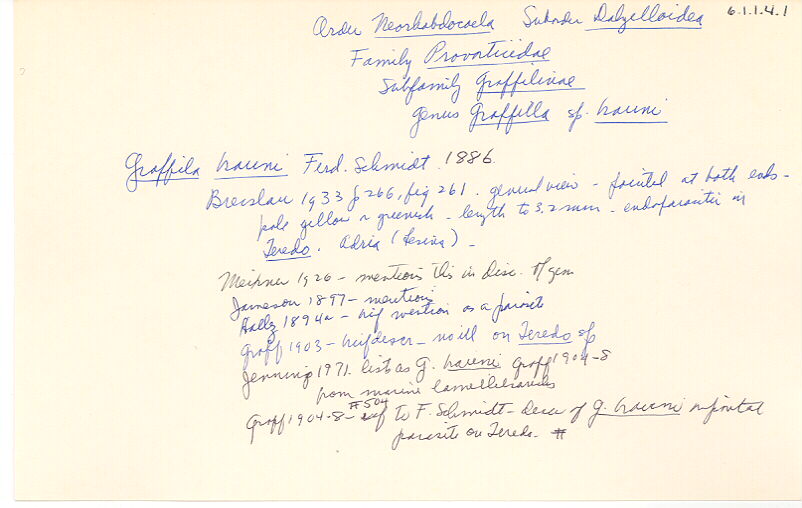 6.1.1.4.1
Order Neorhabdocoela Suborder Dalyelloidea
Family Provorticidae
Subfamily Graffilinae
genus Graffilla sp. brauni
Graffila brauni Ferd. Schmidt. 1886
Bresslau 1933 p 266, fig 261. general view - pointed at both ends -
pale yellow or greenish - length to 3.2 mm - endoparasitic in
Teredo. Adria (Lesina) -
Meixner 1926 - mentions this in disc. of gen
Jameson 1897 - mentions
Hallez 1894a - brief mention as a parasite
Graff 1903 - brief descr - no ill on Teredo sp
Jennings 1971. list as G. brauni Graff 1904-8
from marine lamellibranchs
Graff 1904-8 - #504 ref to F. Schmidt - descr of G. brauni
parasite on Teredo. #